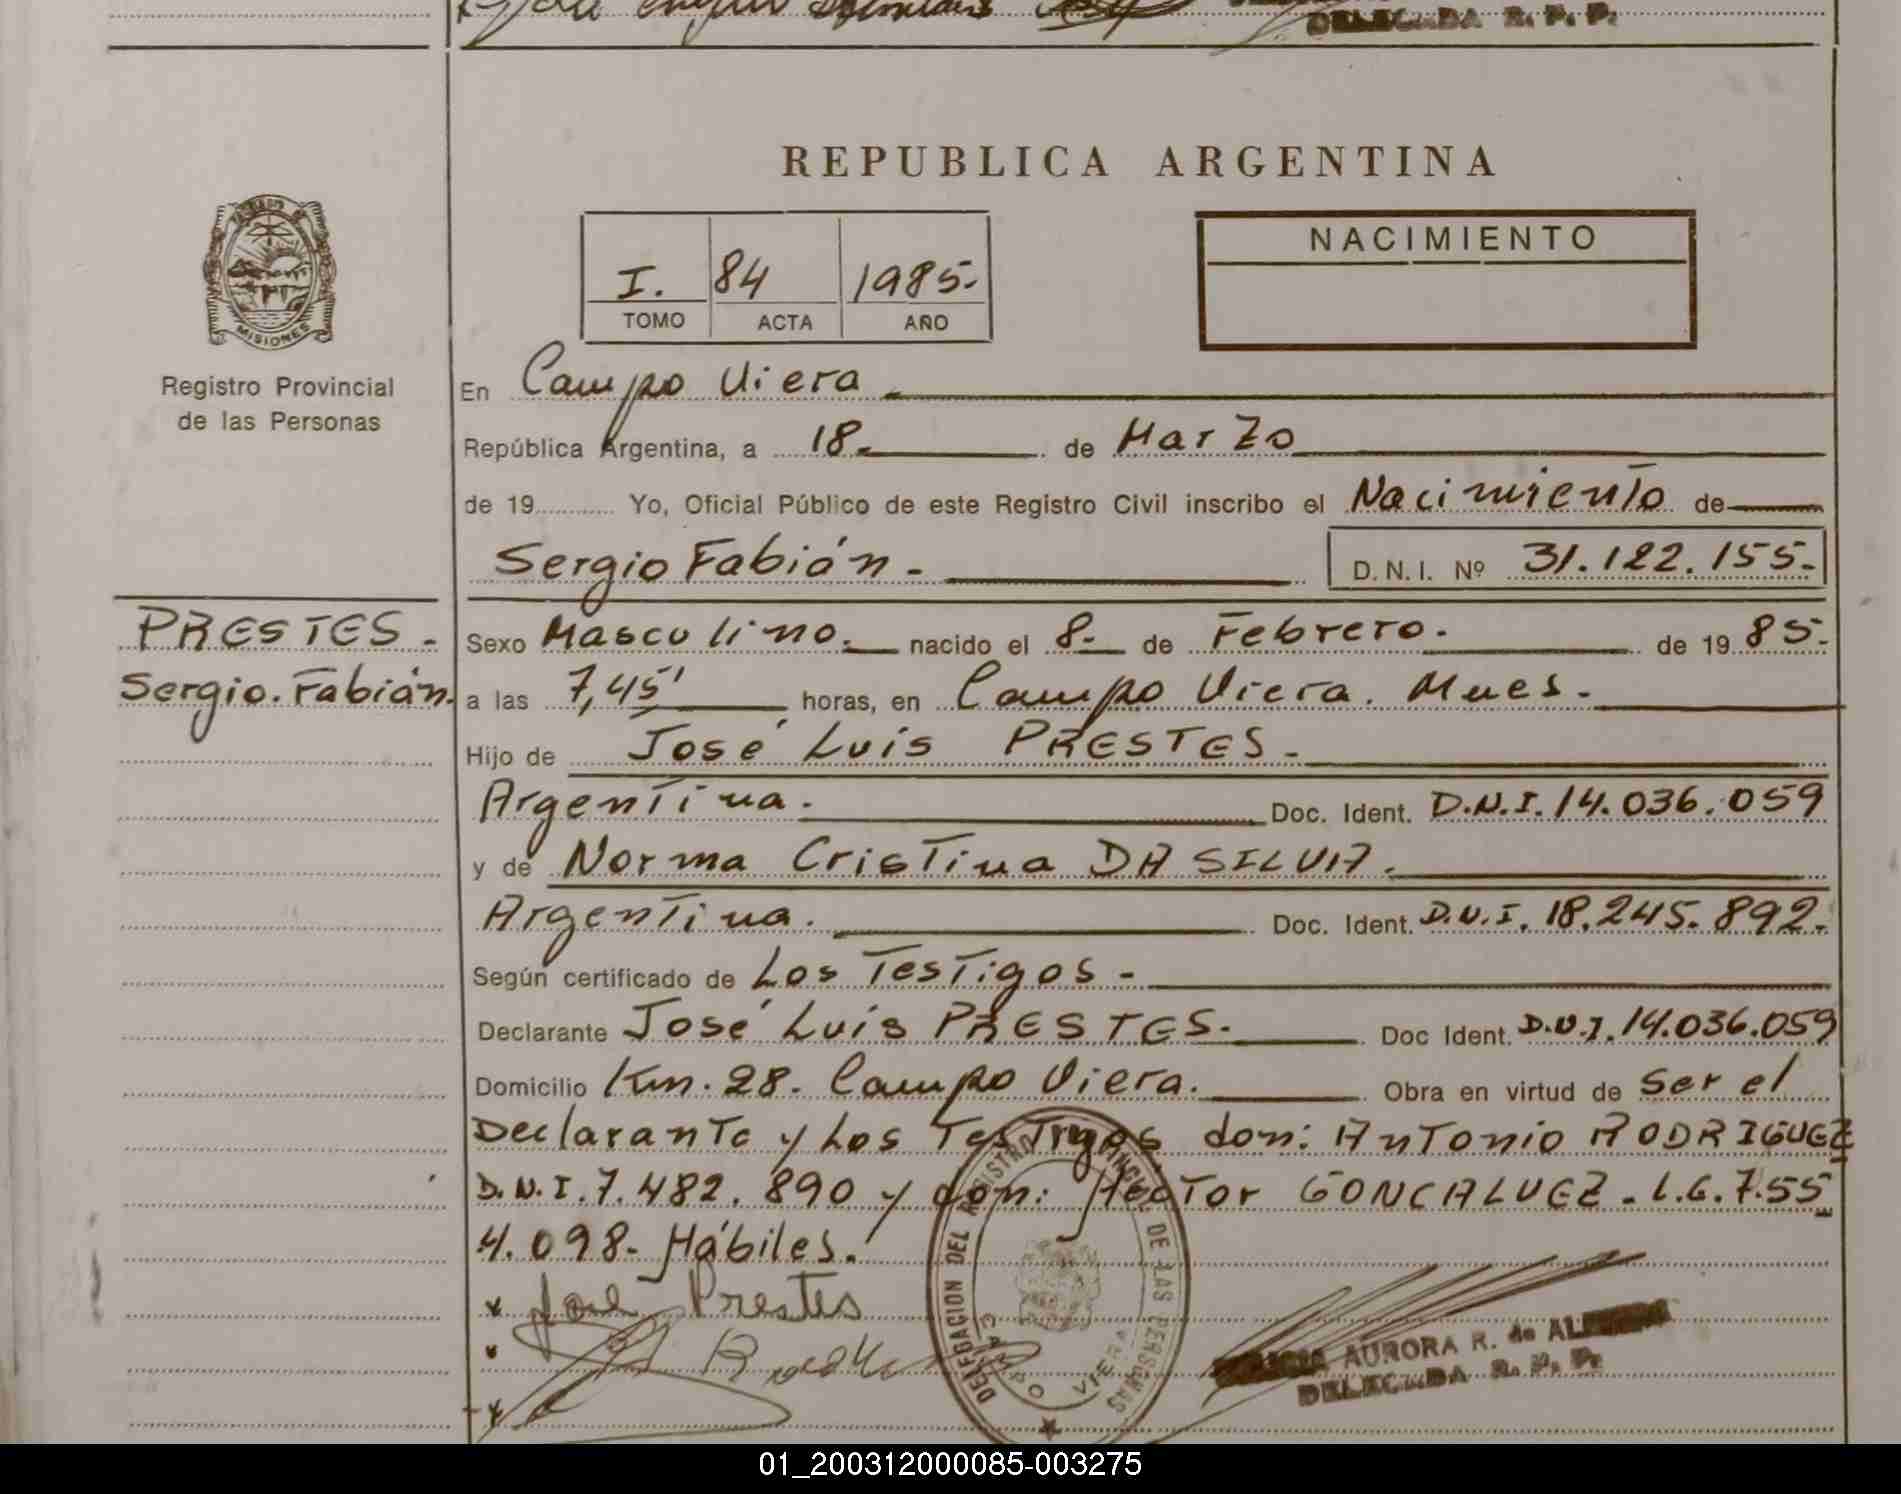 DELEGADA R. P. P.
REPUBLICA ARGENTINA
NACIMIENTO
I. 84 1985-
TOMO ACTA AÑO
MISIONES
Registro Provincial
de las Personas
En Campo Viera
República Argentina, a 18- de Marzo
de 19 Yo, Oficial Público de este Registro Civil inscribo el Nacimiento de
Sergio Fabián - D. N. I. Nº 31.122.155-
PRESTES-
Sergio. Fabián.
Sexo Masculino. nacido el 8- de Febrero. de 19 85-
a las 7,45' horas, en Campo Viera. Mnes.
Hijo de José Luis PRESTES-
Argentina. Doc. Ident. D.N.I. 14.036.059
y de Norma Cristina DA SILVA.
Argentina. Doc. Ident. D.N.I. 18.245.892-
Según certificado de Los Testigos-
Declarante José Luis PRESTES. Doc Ident. D.N.I. 14.036.059
Domicilio Km. 28. Campo Viera. Obra en virtud de ser el
Declarante y Los Testigos don: Antonio RODRIGUEZ
D.N.I. 7.482.890 y don: Hector GONCALVEZ. L.E. 7.55
4.098- Hábiles.
José Prestes
DELEGACION DEL REGISTRO PROVINCIAL DE LAS PERSONAS
CAMPO VIERA
AURORA R. de
DELEGADA R. P. P.
01_200312000085-003275